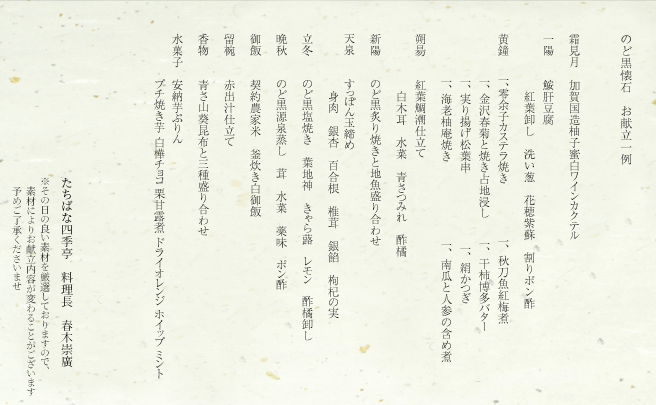 のど黒懐石　お献立一例
霜見月　加賀国造柚子蜜白ワインカクテル
一陽　鮟肝豆腐
紅葉卸し　洗い葱　花穂紫蘇　割りポン酢
黄鐘　一、零余子カステラ焼き　一、秋刀魚紅梅煮
一、金沢春菊と焼き占地浸し　一、干柿博多バター
一、実り揚げ松葉串　一、絹かつぎ
一、海老柚庵焼き　一、南瓜と人参の含め煮
朔易　紅葉鯛潤仕立て
白木耳　水菜　青さつみれ　酢橘
新陽　のど黒炙り焼きと地魚盛り合わせ
天泉　すっぽん玉締め
身肉　銀杏　百合根　椎茸　銀餡　枸杞の実
立冬　のど黒塩焼き　葉地神　きゃら蕗　レモン　酢橘卸し
晩秋　のど黒源泉蒸し　茸　水菜　薬味　ポン酢
御飯　契約農家米　釜炊き白御飯
留椀　赤出汁仕立て
香物　青さ山葵昆布と三種盛り合わせ
水菓子　安納芋ぷりん
プチ焼き芋 白樺チョコ 栗甘露煮 ドライオレンジ ホイップ ミント
たちばな四季亭　料理長　春木崇廣
※その日の良い素材を厳選しておりますので、
素材によりお献立内容が変わることがございます
予めご了承くださいませ